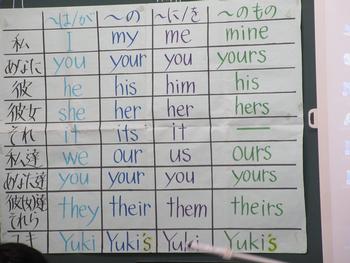 ～は/が ～の ～に/を ～のもの
私 I my me mine
あなた you your you yours
彼 he his him his
彼女 she her her hers
それ it its it —
私達 we our us ours
あなた達 you your you yours
彼女達 それら they their them theirs
ユキ Yuki Yuki's Yuki Yuki's